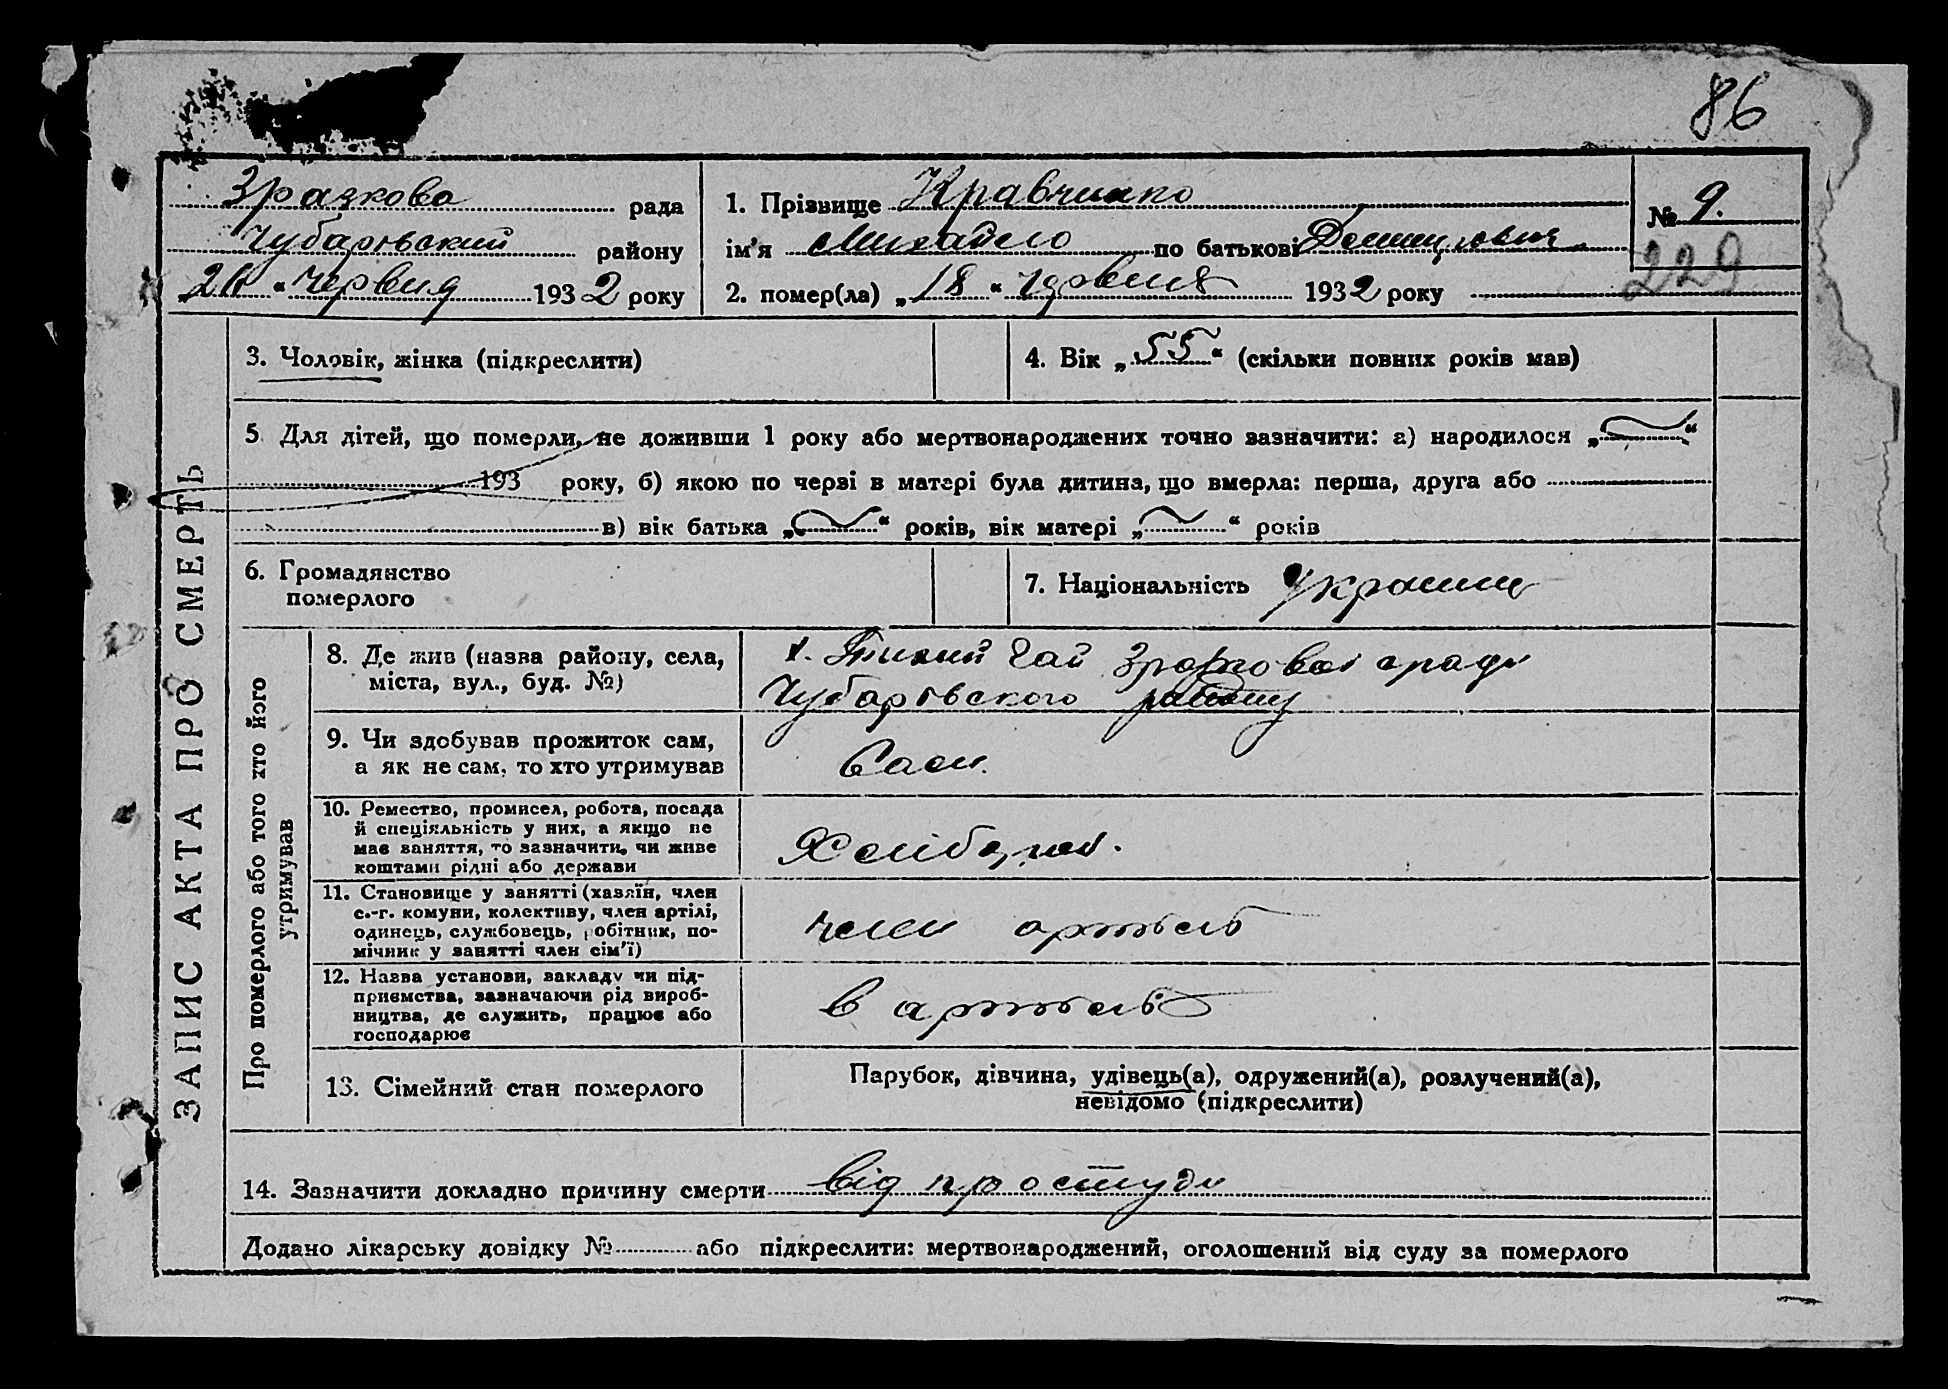 86
Зразкова рада
Чубарівський району
„20“ червня 1932 року
1. Прізвище Кравченко
ім'я Михайло по батькові
2. помер(ла) „18“ червня 1932 року
№ 9.
229
3. Чоловік, жінка (підкреслити)
4. Вік „55“ (скільки повних років мав)
5. Для дітей, що померли, не доживши 1 року або мертвонароджених точно зазначити: а) народилося „ “
193 року, б) якою по черзі в матері була дитина, що вмерла: перша, друга або
в) вік батька „ “ років, вік матері „ “ років
6. Громадянство
померлого
7. Національність Українец
ЗАПИС АКТА ПРО СМЕРТЬ
Про померлого або того хто його
утримував
8. Де жив (назва району, села,
міста, вул., буд. №)
Гай Зразкової зради
Чубарівського району
9. Чи здобував прожиток сам,
а як не сам, то хто утримував
Сам.
10. Ремество, промисел, робота, посада
й спеціяльність у них, а якщо не
мав заняття, то зазначити, чи живе
коштами рідні або держави
Хлібороб.
11. Становище у занятті (хазяїн, член
с.-г. комуни, колективу, член артілі,
одинець, службовець, робітник, по-
мічник у занятті член сім'ї)
член артель
12. Назва установи, закладу чи під-
приємства, зазначаючи рід вироб-
ництва, де служить, працює або
господарює
в артель
13. Сімейний стан померлого
Парубок, дівчина, удівець(а), одружений(а), розлучений(а),
невідомо (підкреслити)
14. Зазначити докладно причину смерти від простуди
Додано лікарську довідку № або підкреслити: мертвонароджений, оголошений від суду за померлого